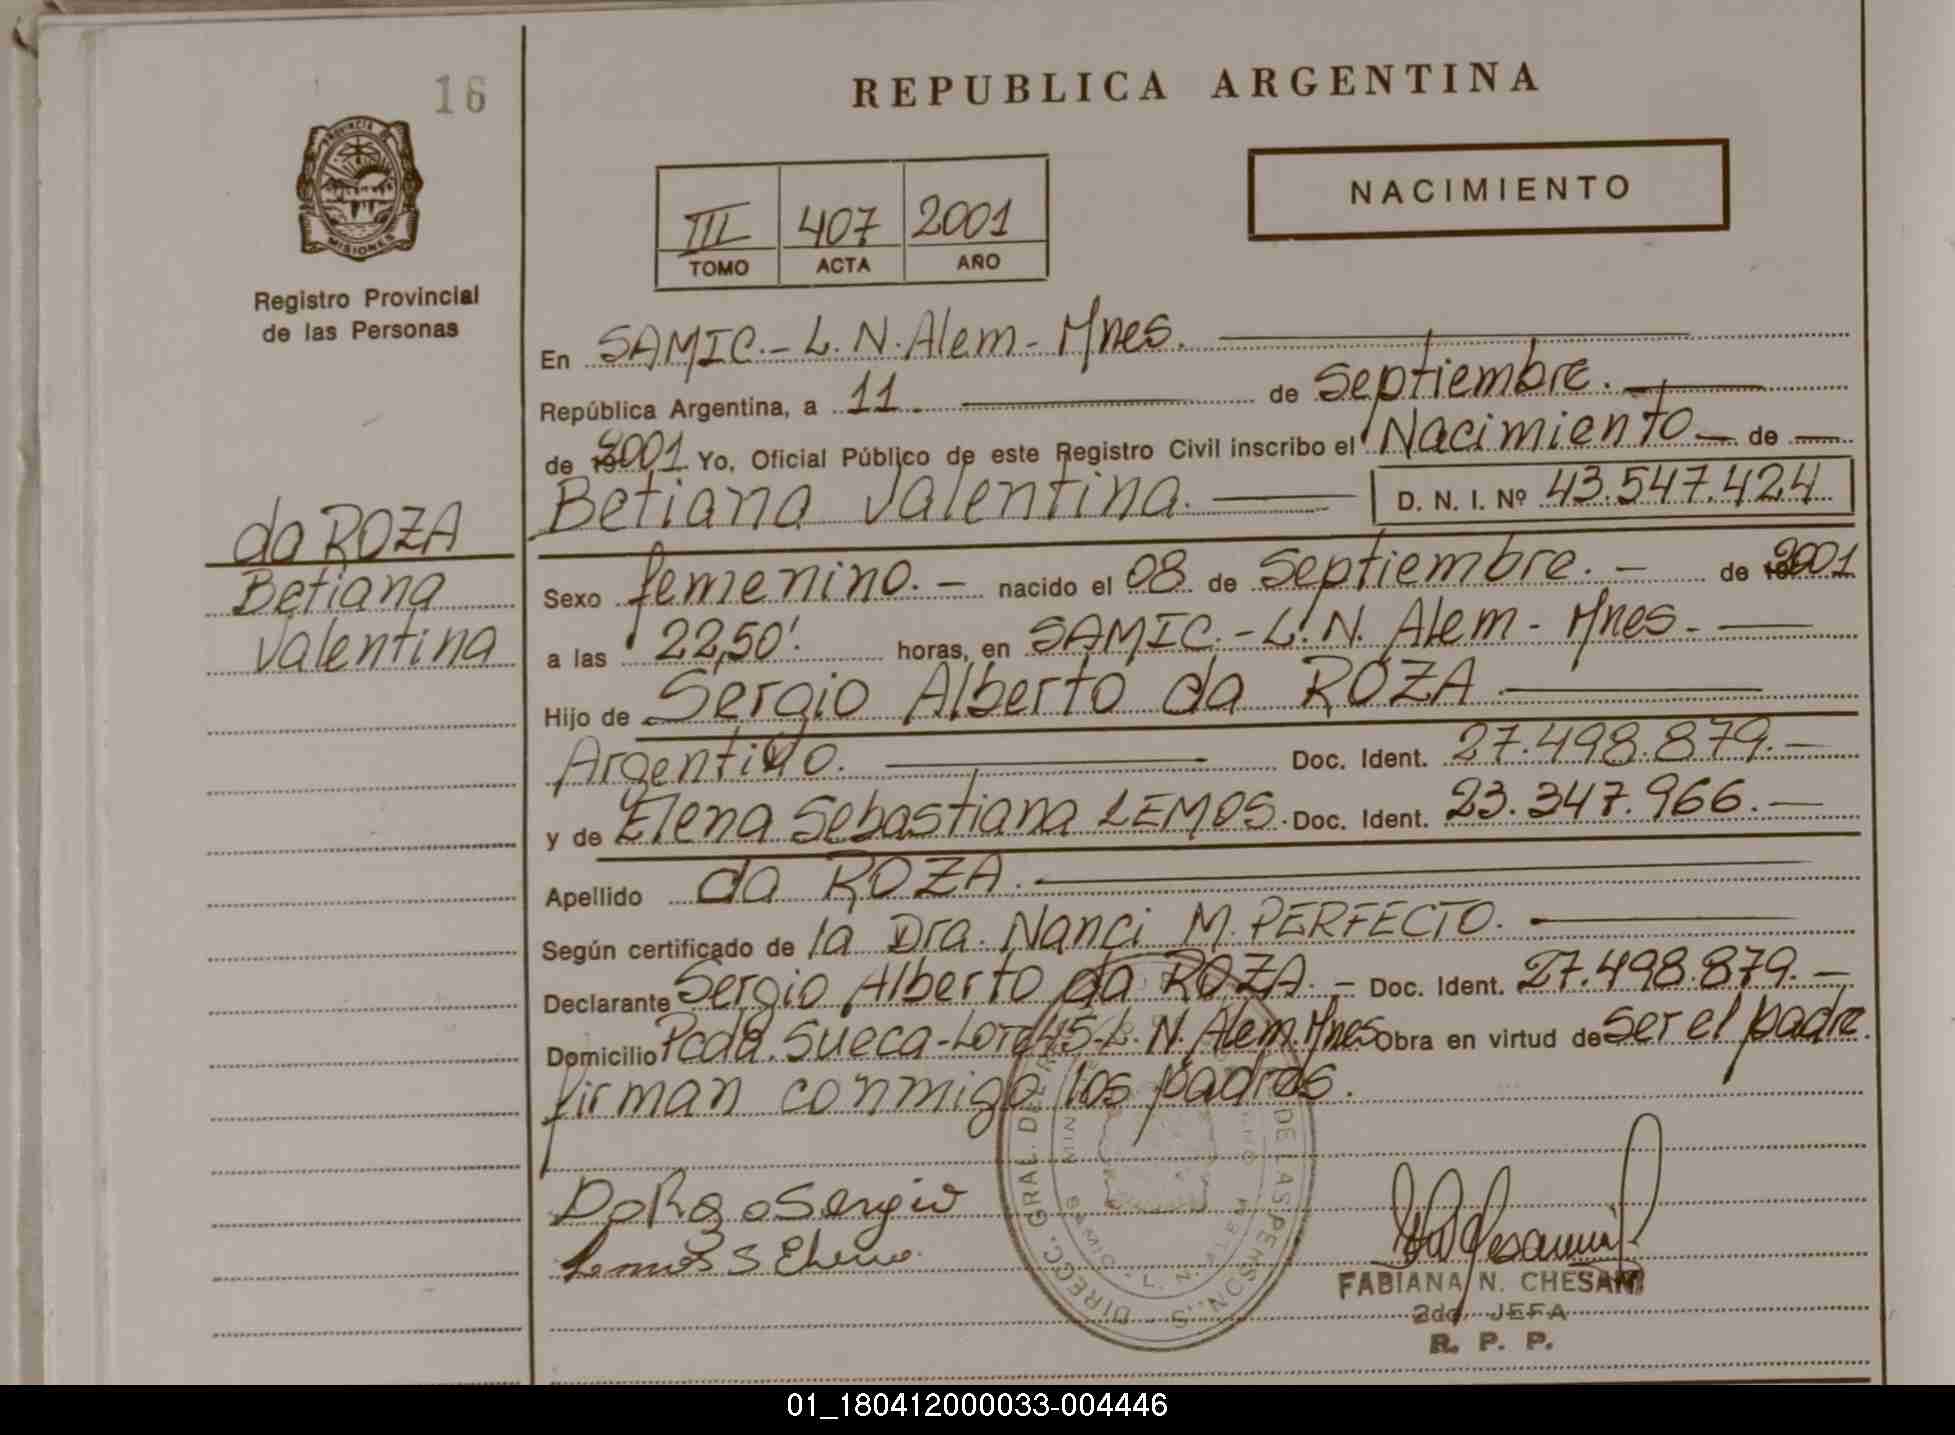 16
REPUBLICA ARGENTINA
PROVINCIA DE
MISIONES
Registro Provincial
de las Personas
III 407 2001
TOMO ACTA AÑO
NACIMIENTO
En SAMIC.- L. N. Alem - Mnes.
República Argentina, a 11 de Septiembre.
de 2001 Yo, Oficial Público de este Registro Civil inscribo el Nacimiento de
Betiana Valentina. D. N. I. Nº 43.547.424
da ROZA
Betiana
Valentina
Sexo femenino. - nacido el 08 de Septiembre. - de 2001
a las 22,50'. horas, en SAMIC.- L. N. Alem - Mnes.
Hijo de Sergio Alberto da ROZA
Argentino. Doc. Ident. 27.498.879.-
y de Elena Sebastiana LEMOS. Doc. Ident. 23.347.966.-
Apellido da ROZA.
Según certificado de la Dra. Nanci M. PERFECTO.
Declarante Sergio Alberto da ROZA. - Doc. Ident. 27.498.879.-
Domicilio Pcda. Sueca-Lote 45-L. N. Alem. Mnes Obra en virtud de ser el padre.
firman conmigo los padres.
DIRECC. GRAL. DEL R DE LAS PERSON
L. N. ALEM
FABIANA N. CHESANI
2da. JEFA
R. P. P.
01_180412000033-004446